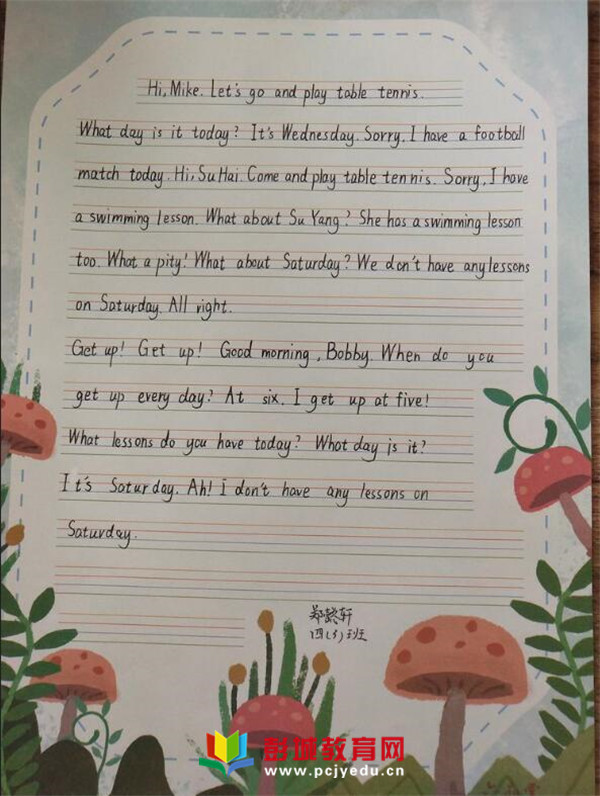 Hi, Mike. Let's go and play table tennis.
What day is it today? It's Wednesday. Sorry, I have a football
match today. Hi, Su Hai. Come and play table tennis. Sorry, I have
a swimming lesson. What about Su Yang? She has a swimming lesson
too. What a pity! What about Saturday? We don't have any lessons
on Saturday. All right.
Get up! Get up! Good morning, Bobby. When do you
get up every day? At six. I get up at five!
What lessons do you have today? What day is it?
It's Saturday. Ah! I don't have any lessons on
Saturday.
郑懿轩
四(5)班
彭城教育网
www.pcjyedu.cn